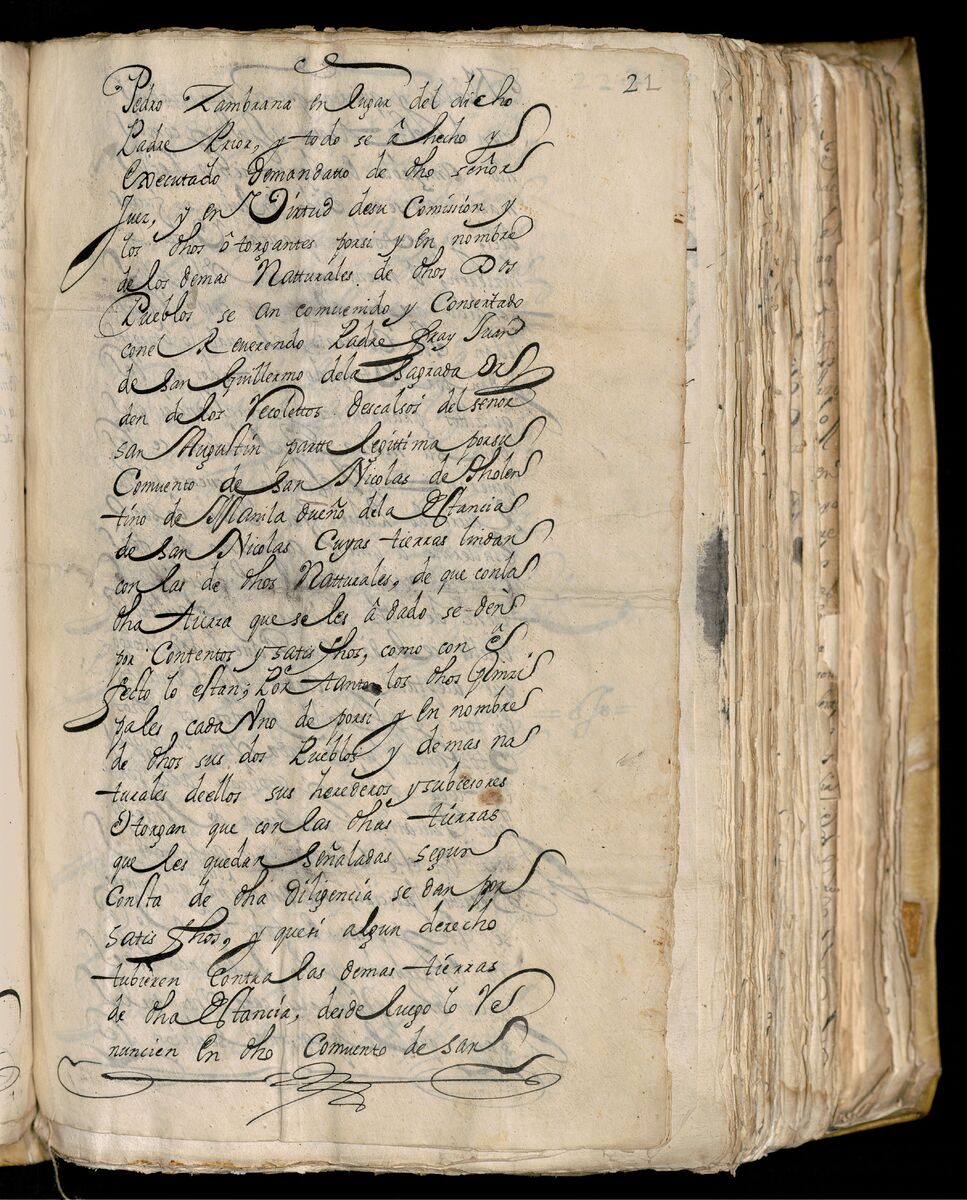 21
Pedro Zambrana en lugar del dicho
Padre Prior, y todo se â hecho y
Executado demandatto de dho señor
Juez, y en Virtud desu Comission y
los dhos ôtorgantes porsi y en nombre
de los demas Natturales de dhos Dos
Pueblos se an comuenido y Consertado
conel Reverendo Padre fray Juan
de san Guillermo dela sagrada Or
den de los Recolettos descalsos del señor
san Augustin partte legittima porsu
Comuento de san Nicolas de tholen
tino de Manila dueño dela Estancia
de san Nicolas Cuyas tierras lindan
con las de dhos Natturales, de que conla
dha tierra que se les â dado se den
por Contentos y satisfhos, como con e
fecto lo estan; Por tanto los dhos Prinzi
pales cada Vno de porsi y en nombre
de dhos sus dos Pueblos y demas na
turales deellos sus herederos y subcesores
Otorgan que con las dhas tierras
que les quedan señaladas segun
Consta de dha diligencia se dan por
satisfhos, y quesi algun derecho
tubieren contra las demas tierras
de dha Estancia, desde luego lo re
nuncien en dho Comuento de san